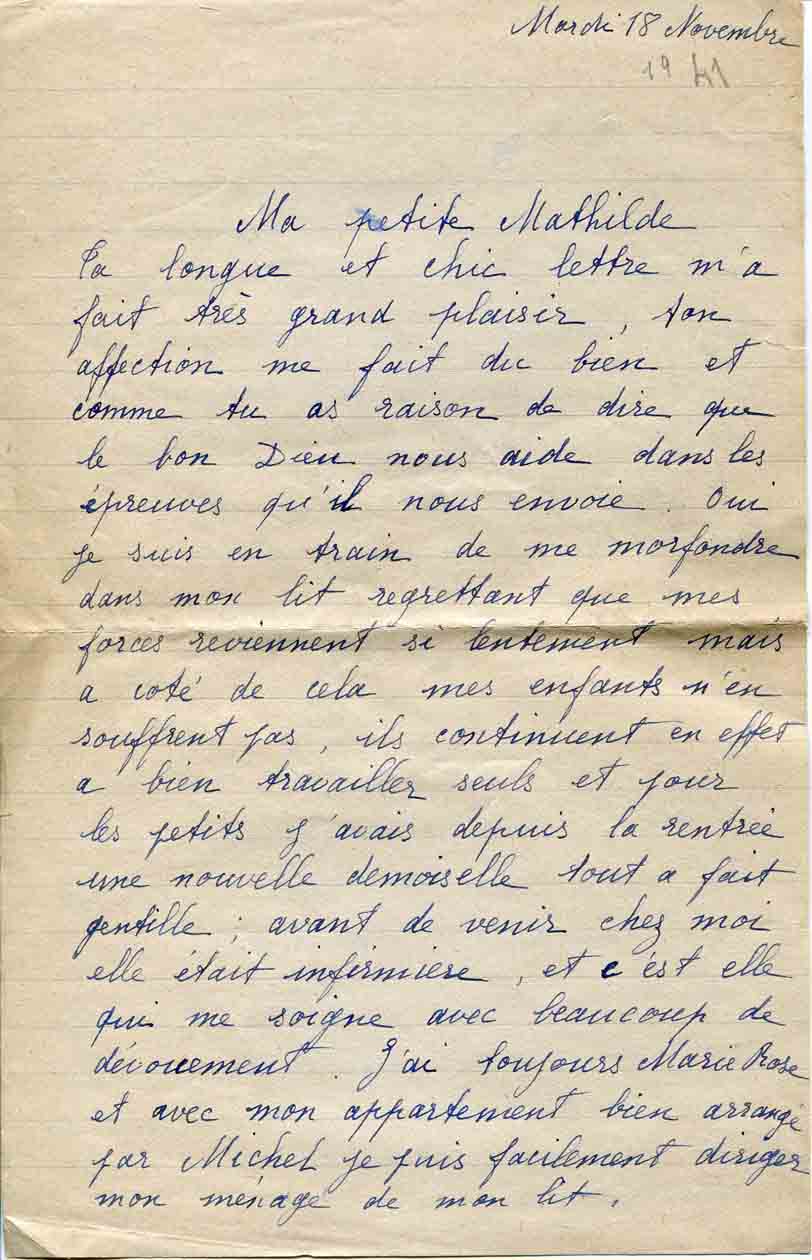 Mardi 18 Novembre
1941
Ma petite Mathilde
Ta longue et chic lettre m'a
fait très grand plaisir, ton
affection me fait du bien et
comme tu as raison de dire que
le bon Dieu nous aide dans les
épreuves qu'il nous envoie. Oui
je suis en train de me morfondre
dans mon lit regrettant que mes
forces reviennent si lentement mais
a coté de cela mes enfants n'en
souffrent pas, ils continuent en effet
a bien travailler seuls et pour
les petits j'avais depuis la rentrée
une nouvelle demoiselle tout a fait
gentille ; avant de venir chez moi
elle était infirmière, et c'est elle
qui me soigne avec beaucoup de
dévouement. J'ai toujours Marie Rose
et avec mon appartement bien arrangé
par Michel je puis facilement diriger
mon ménage de mon lit.